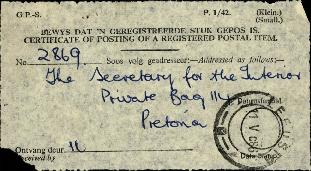 G.P.-S. P. 1/42. (Klein.)
(Small.)
BEWYS DAT 'N GEREGISTREERDE STUK GEPOS IS.
CERTIFICATE OF POSTING OF A REGISTERED POSTAL ITEM.
No. 2869 Soos volg geadresseer:—Addressed as follows:—
The Secretary for the Interior
Private Bag 114
Pretoria
Datumstempel
Ontvang deur
Received by
Date Stamp